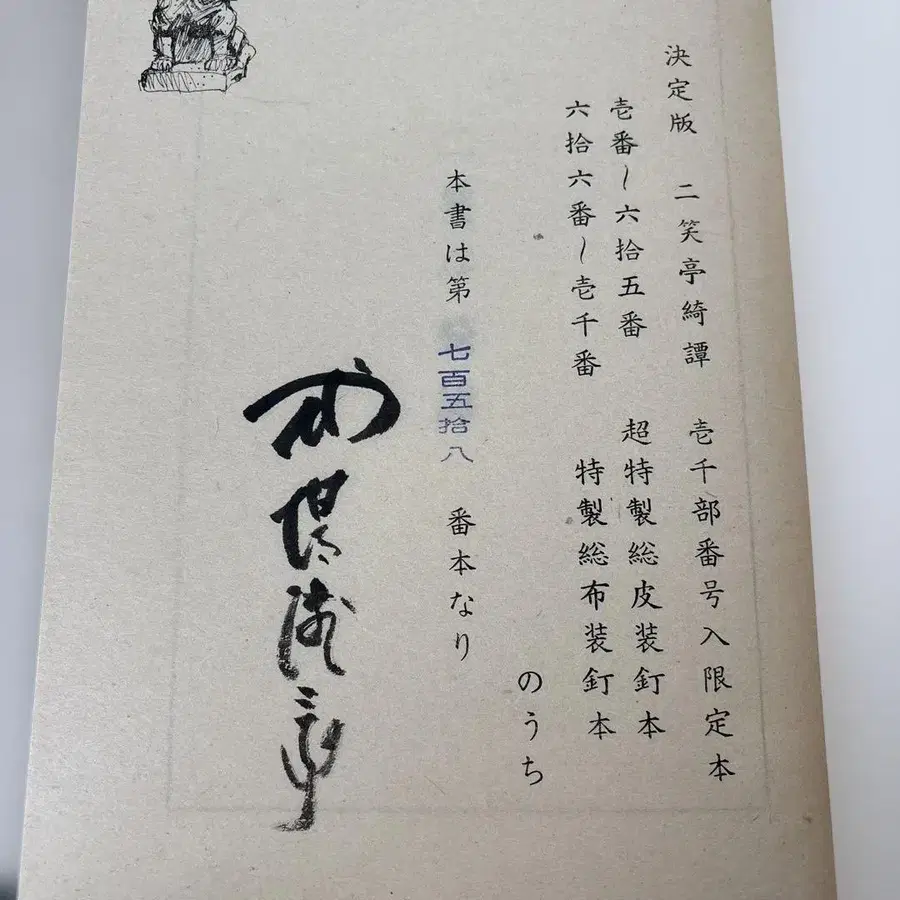 決定版 二笑亭綺譚 壱千部番号入限定本
壱番~六拾五番 超特製総皮装釘本
六拾六番~壱千番 特製総布装釘本
のうち
本書は第 七百五拾八 番本なり